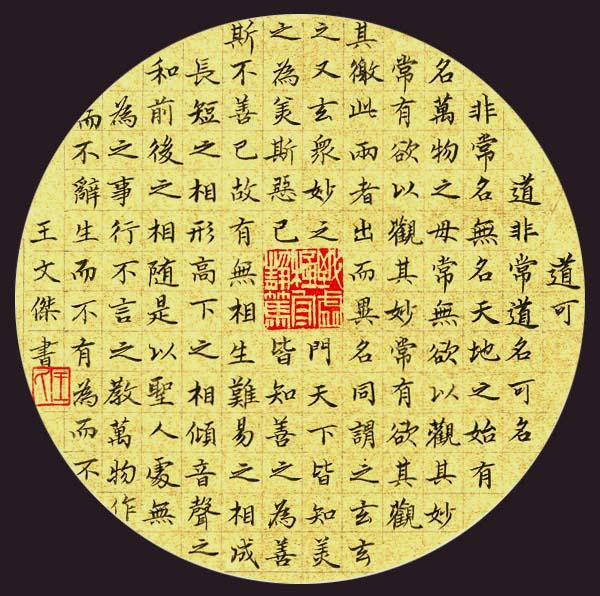 道可
道非常道名可名
非常名無名天地之始有
名萬物之母常無欲以觀其妙
常有欲以觀其妙常有欲其觀
其徼此兩者出而異名同謂之玄玄
之又玄眾妙之門天下皆知美
之為美斯惡已皆知善之為善
斯不善已故有無相生難易之相成
長短之相形高下之相傾音聲之
和前後之相随是以聖人處無
為之事行不言之教萬物作
而不辭生而不有為而不
王文傑書
致虛
極守
靜篤